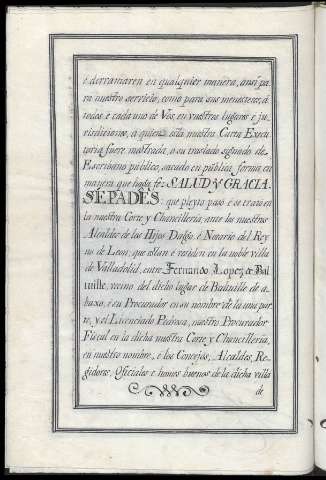 é derramaren en qualquier manera, ansi pa
ra nuestro servicio, como para sus menesteres, á
todos, é cada uno de Vos, en vuestros lugares é ju-
risdiciones, a quien esta nuestra Carta Execu
toria fuere mostrada, o su traslado signado de
Escribano público, sacado en pública forma, en
manera que haga fé: SALUD Y GRACIA.
SEPADES: que pleyto pasó é se trató en
la nuestra Corte y Chancillería, ante los nuestros
Alcaldes de los Hijos Dalgo, é Notario del Rey
no de Leon, que están é residen en la noble villa
de Valladolid, entre Fernando Lopez, de Bal
uille, vecino del dicho lugar de Balbuille de a-
baxo, é su Procurador en su nombre de la una par
te, y el Licenciado Pedrosa, nuestro Procurador
Fiscal en la dicha nuestra Corte y Chancillería,
en nuestro nombre, é los Concejos, Alcaldes, Re
gidores, Oficiales é homes buenos de la dicha villa
de